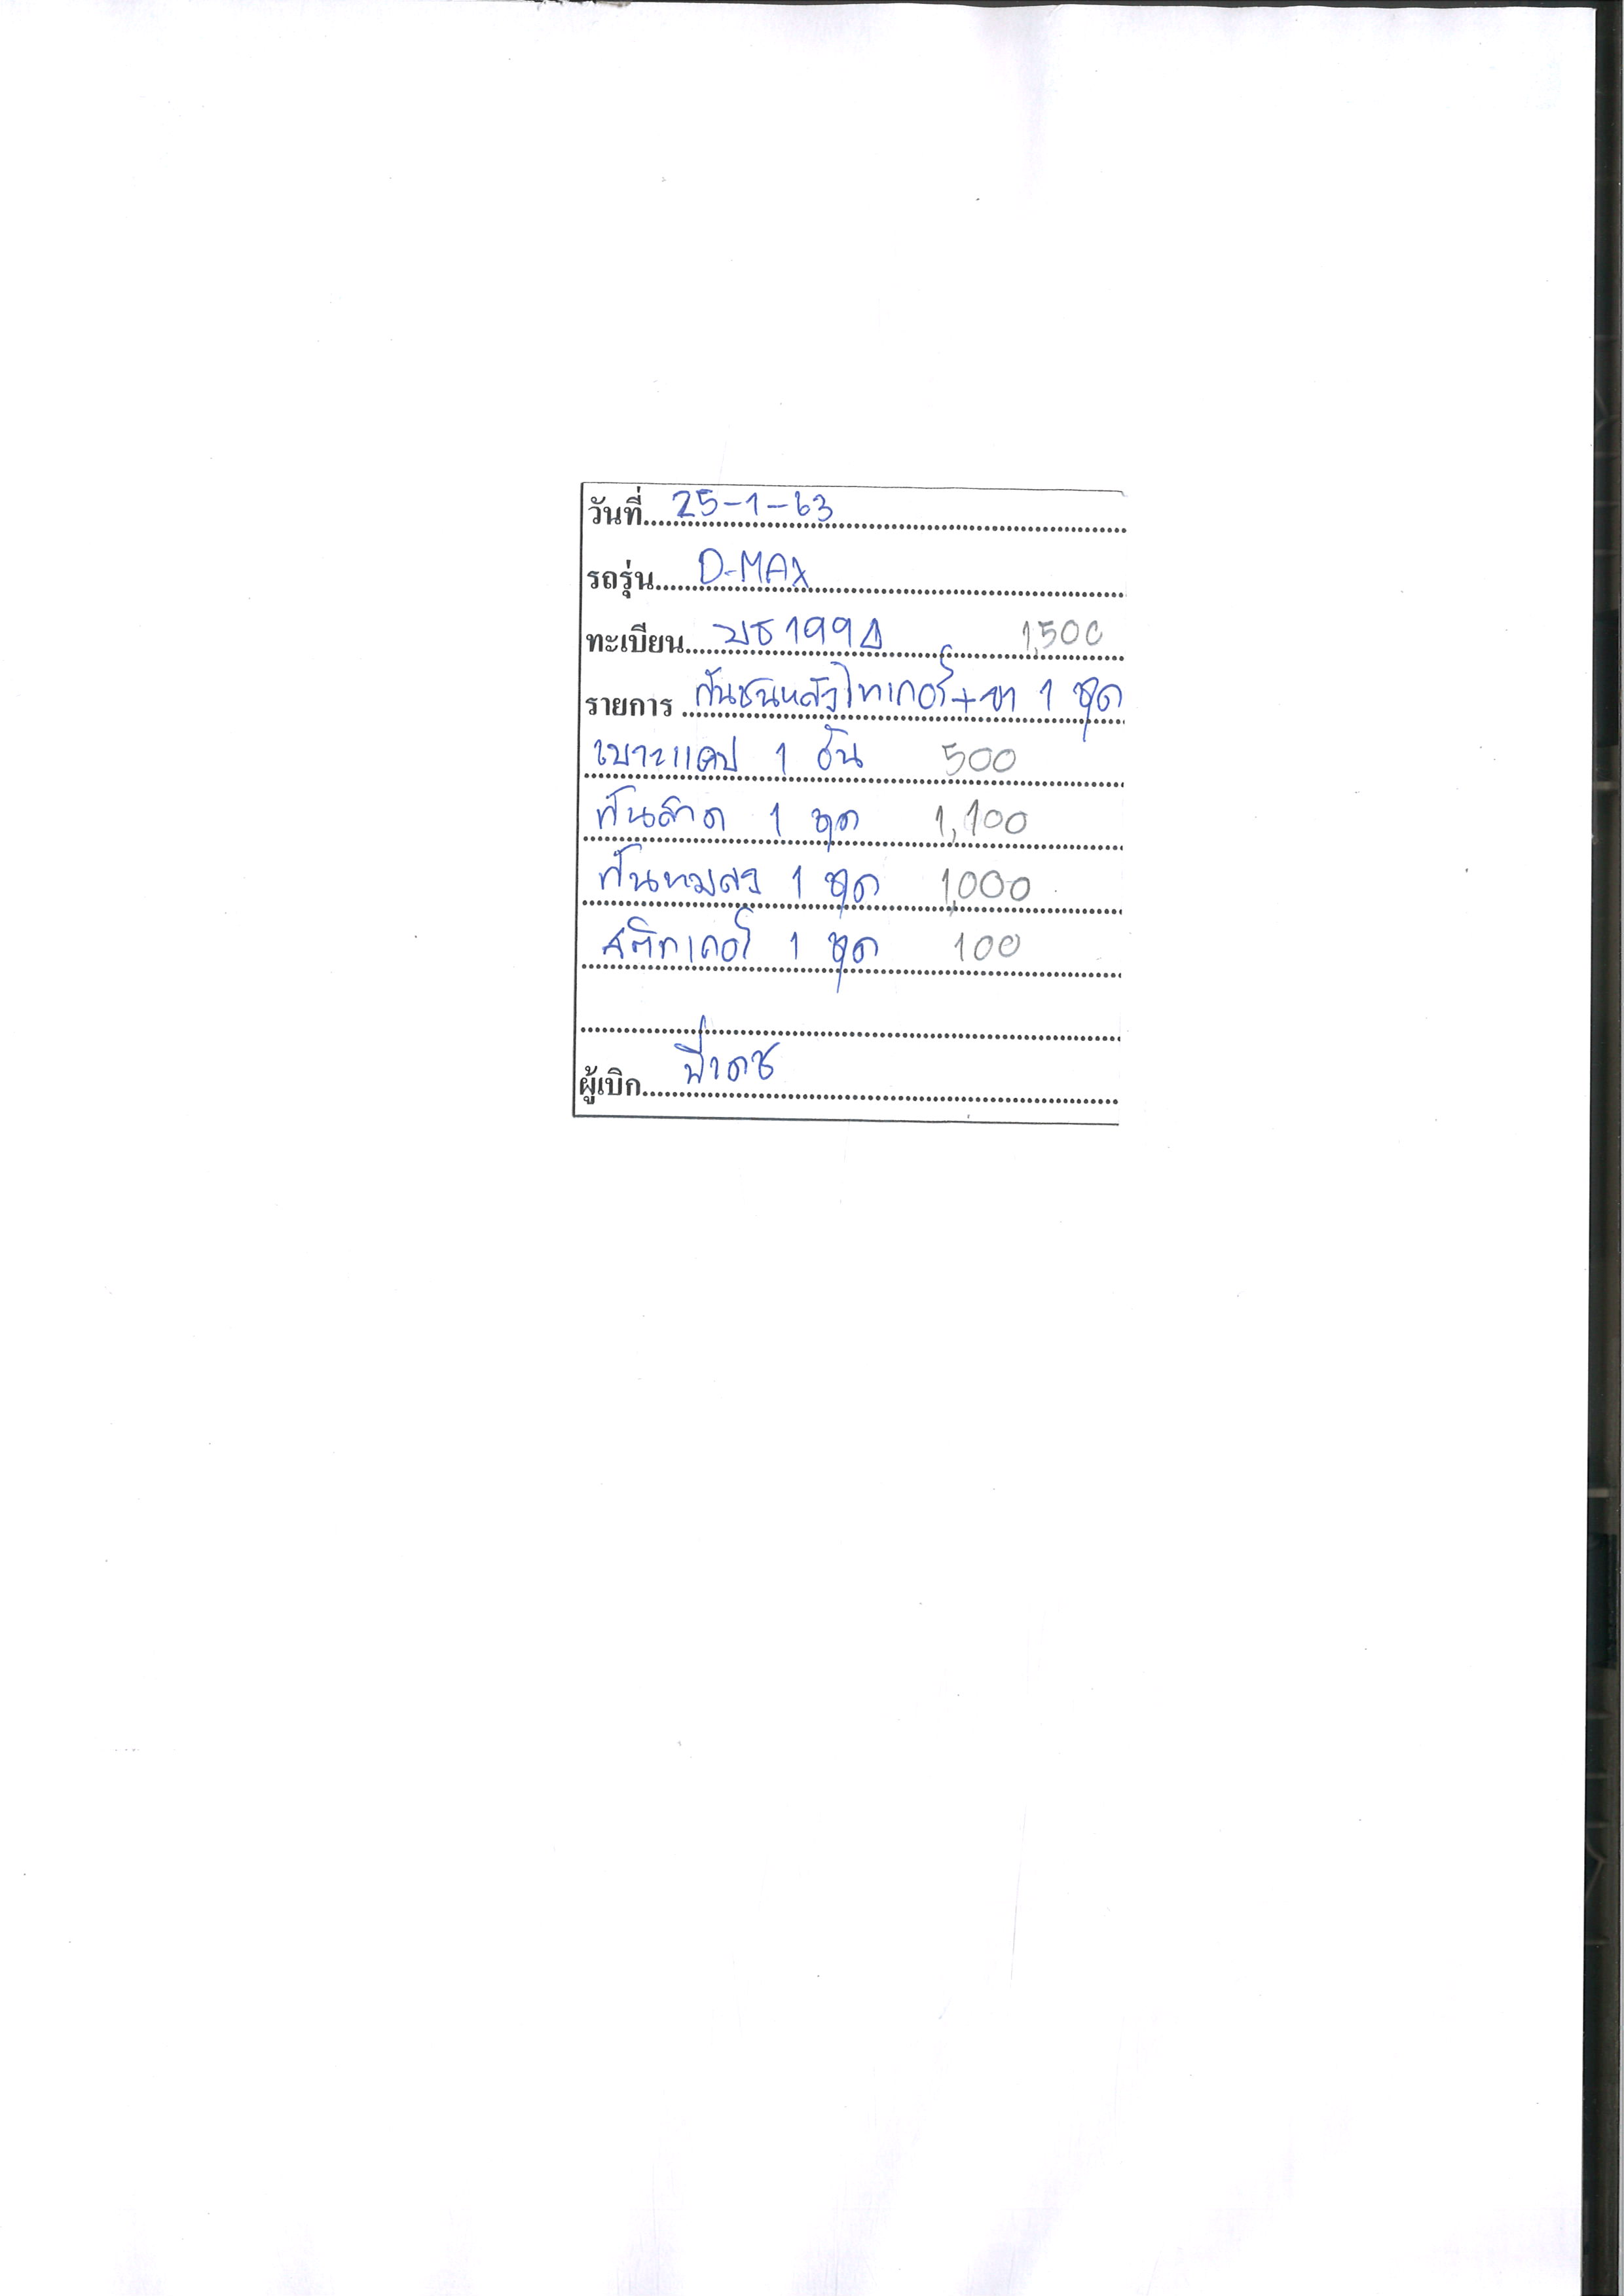 วันที่ 25-1-63
รถรุ่น D-MAX
ทะเบียน 1,500
รายการ กันชนหลังไทเกอร์+ขา 1 ชุด
เบาะแคป 1 อัน 500
1 ชุด 1,100
1 ชุด 1,000
สติกเกอร์ 1 ชุด 100
ผู้เบิก พี่เดช